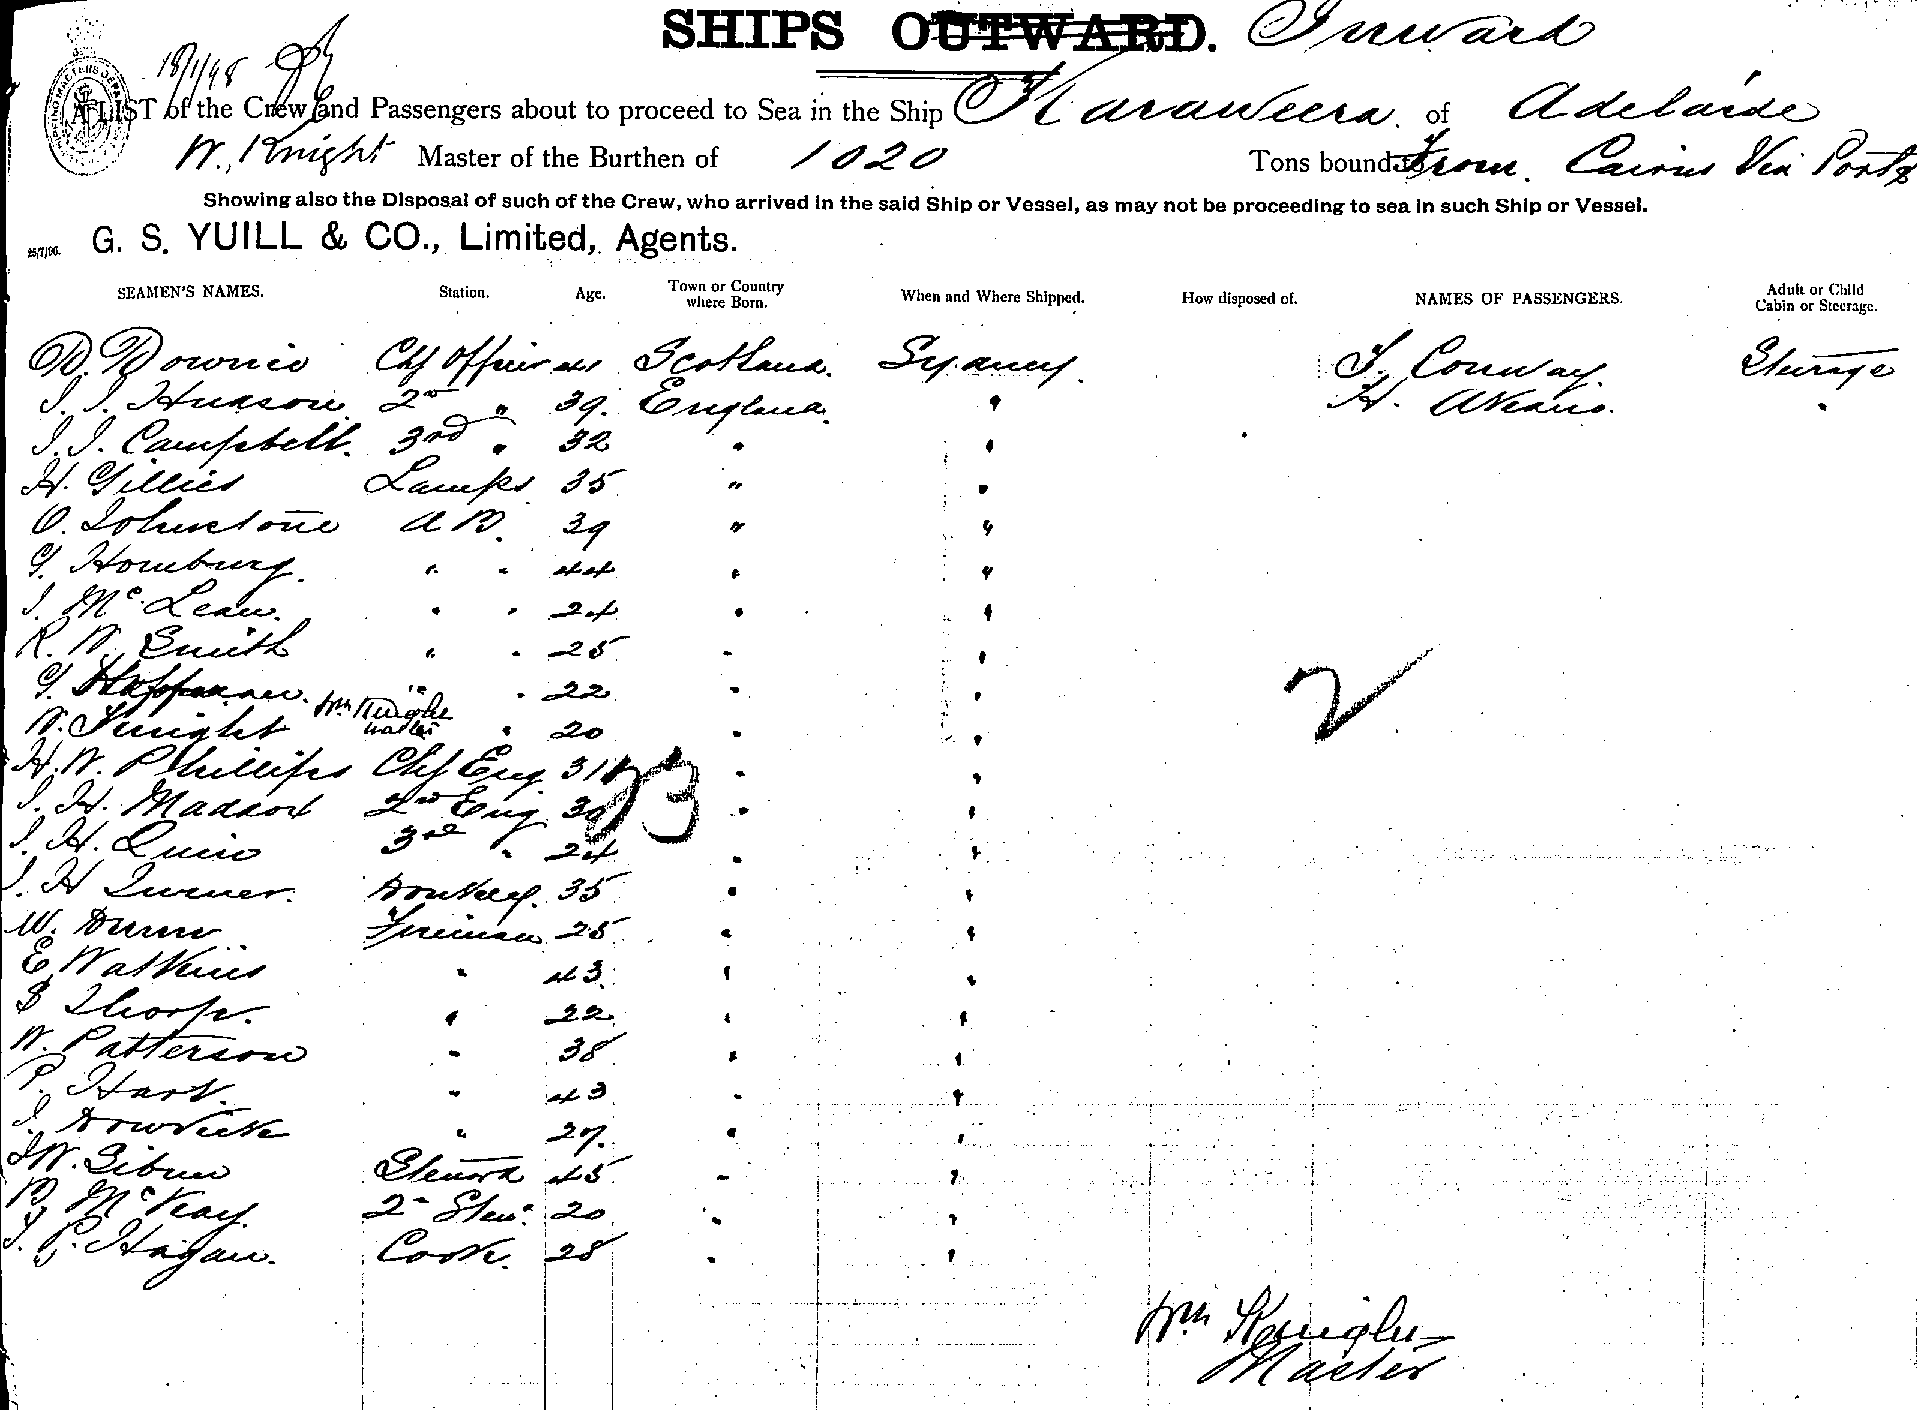 SHIPS OUTWARD. Inward
18/1/98
A LIST of the Crew and Passengers about to proceed to Sea in the Ship Karaweera. of Adelaide
W. Knight Master of the Burthen of 1020 Tons bound From. Cairns Via Ports
Showing also the Disposal of such of the Crew, who arrived in the said Ship or Vessel, as may not be proceeding to sea in such Ship or Vessel.
25/7/96. G. S. YUILL & CO., Limited, Agents.
SEAMEN'S NAMES. Station. Age. Town or Country where Born. When and Where Shipped. How disposed of. NAMES OF PASSENGERS. Adult or Child Cabin or Steerage.
D. Downie Chf Officer 44 Scotland. Sydney. T. Conway. Steerage
J. J. Hudson 2nd " 39. England. " H. "
J. J. Campbell. 3rd " 32 " "
H. Gillies Lamps 35 " "
O. Johnstone A B. 39 " "
G. Homburg. " " 44 " "
J. McLean. " " 24 " "
R. W. Smith " " 25 " "
G. " " 22 " "
Wm Knight Master
W. " 20 " "
H. W. Phillips Chf Eng. 31 " "
J. H. Maddox 2nd Eng 30 " "
J. H. Quin 3rd " 24 " "
J. H Turner. Donkey. 35 " "
W. Dunn Fireman 25 " "
E Watkins " 43 " "
B Thorp. " 22 " "
W. Patterson " 38 " "
P. Hart. " 43 " "
J. " 27. " "
J W. Steward 45 " "
D. McKay. 2nd Stew. 20 " "
J. P. Hagan. Cook. 28 " "
23
2
Wm Knight
Master